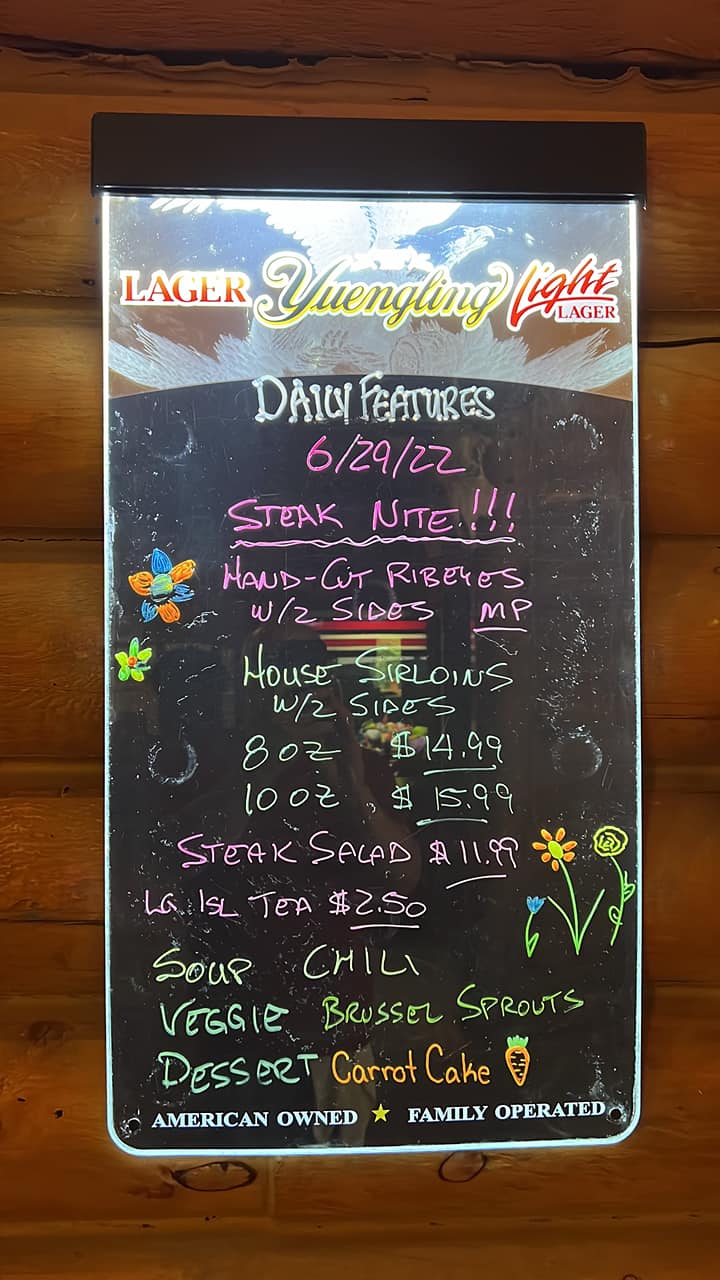 LAGER Yuengling Light LAGER
DAILY FEATURES
6/29/22
STEAK NITE!!!
HAND-CUT RIBEYES
W/2 SIDES MP
HOUSE SIRLOINS
W/2 SIDES
8 OZ $14.99
10 OZ $15.99
STEAK SALAD $11.99
LG ISL TEA $2.50
SOUP CHILI
VEGGIE BRUSSEL SPROUTS
DESSERT Carrot Cake
AMERICAN OWNED ★ FAMILY OPERATED